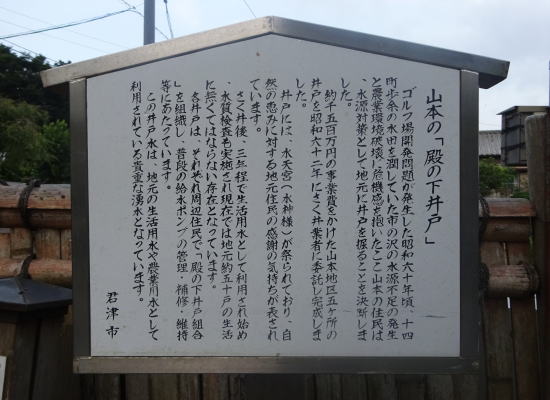 山本の「殿の下井戸」
ゴルフ場開発問題が発生した昭和六十年頃、十四
町歩余の水田を潤していた市の沢の水源不足の発生
と農業環境破壊に危機感を抱いたここ山本の住民は
、水源対策として地元に井戸を掘ることを決断しま
した。
約千五百万円の事業費をかけた山本地区五ヶ所の
井戸を昭和六十二年にさく井業者に委託し完成しま
した。
井戸には、水天宮(水神様)が祭られており、自
然の恵みに対する地元住民の感謝の気持ちが表され
ています。
さく井後、二三年程で生活用水として利用され始め
、水質検査も実施され現在では地元約五十戸の生活
に無くてはならない存在となっています。
各井戸は、それぞれ周辺住民で「殿の下井戸組合
」を組織し、普段の給水ポンプの管理・補修・維持
等にあたっています。
この井戸水は、地元の生活用水や農業用水として
利用されている貴重な湧水となっています。
君津市